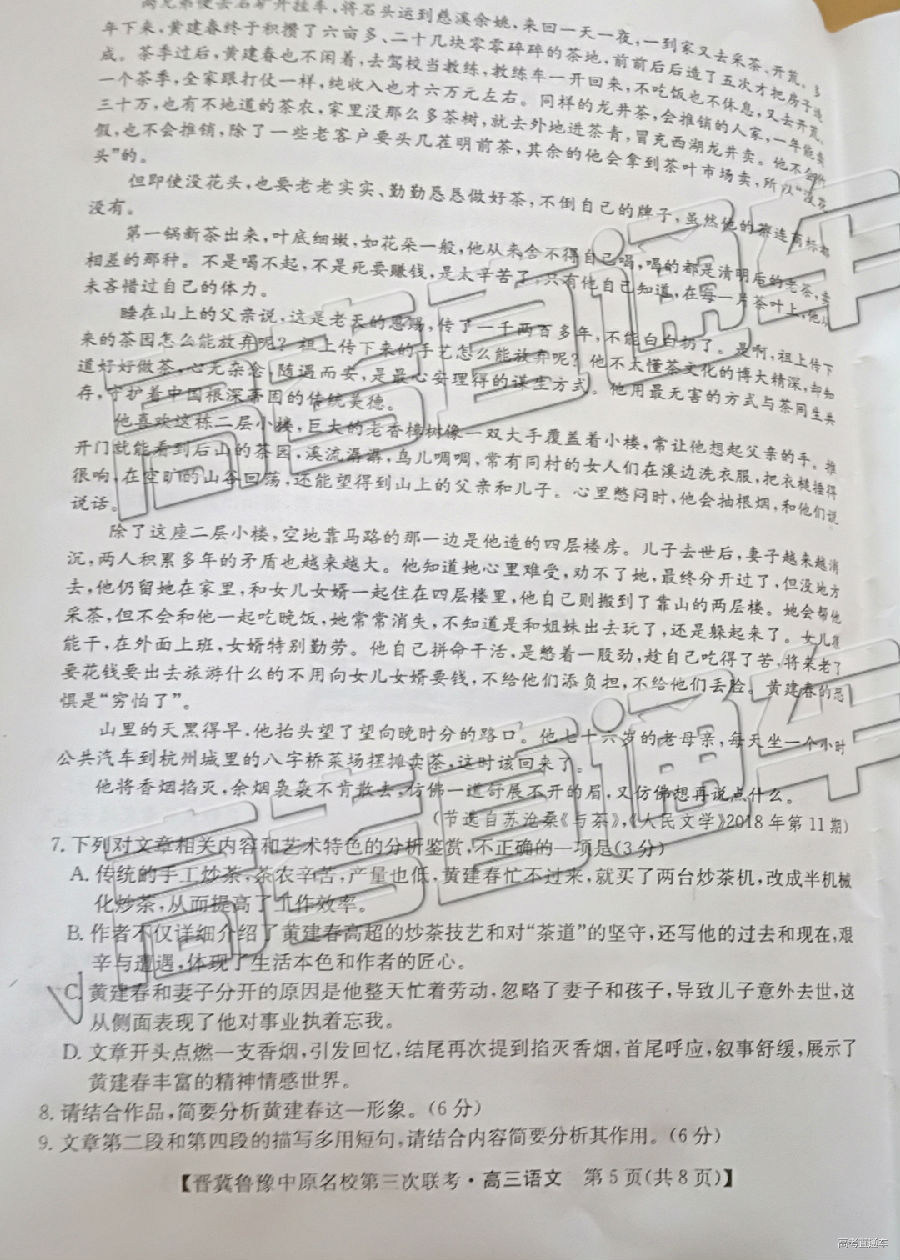 两兄弟便去石矿开拉车,将石头运到慈溪余姚、来回一天一夜,一到家又去采茶、开荒。
年下来,黄建春终于积攒了六亩多、二十几块零零碎碎的茶地,前前后后造了五次才把房子造
成。茶季过后,黄建春也不闲着,去驾校当教练,教练车一开回来,不吃饭也不休息,又去开荒。
一个茶季,全家跟打仗一样,纯收入也才六万元左右。同样的龙井茶,会推销的人家,一年能卖
三十万,也有不地道的茶农,家里没那么多茶树,就去外地进茶青,冒充西湖龙井卖。他不会
假,也不会推销,除了一些老客户要头几茬明前茶,其余的他会拿到茶叶市场卖,所以“没花
头”的。
但即使没花头,也要老老实实、勤勤恳恳做好茶,不倒自己的牌子,虽然他的茶连商标都
没有。
第一锅新茶出来,叶底细嫩,如花朵一般,他从来舍不得自己喝,喝的都是清明后的老茶,卖
相差的那种。不是喝不起,不是死要赚钱,是太辛苦了,只有他自己知道,在每一片茶叶上,他从
未吝惜过自己的体力。
睡在山上的父亲说,这是老天的恩赐,传了一千两百多年,不能白白扔了。是啊,祖上传下
来的茶园怎么能放弃呢?祖上传下来的手艺怎么能放弃呢?他不太懂茶文化的博大精深,却知
道好好做茶,心无杂念,随遇而安,是最心安理得的谋生方式。他用最无害的方式与茶同生共
存,守护着中国根深蒂固的传统美德。
他喜欢这栋二层小楼,巨大的老香樟树像一双大手覆盖着小楼,常让他想起父亲的手。推
开门就能看到后山的茶园,溪流潺潺,鸟儿啁啁,常有同村的女人们在溪边洗衣服,把衣槌捶得
很响,在空旷的山谷回荡,还能望得到山上的父亲和儿子。心里憋闷时,他会抽根烟,和他们说
说话。
除了这座二层小楼,空地靠马路的那一边是他造的四层楼房。儿子去世后,妻子越来越消
沉,两人积累多年的矛盾也越来越大。他知道她心里难受,劝不了她,最终分开过了,但没地方
去,他仍留她在家里,和女儿女婿一起住在四层楼里,他自己则搬到了靠山的两层楼。她会帮他
采茶,但不会和他一起吃晚饭,她常常消失,不知道是和姐妹出去玩了,还是躲起来了。女儿很
能干,在外面上班,女婿特别勤劳。他自己拼命干活,是憋着一股劲,趁自己吃得了苦,将来老了
要花钱要出去旅游什么的不用向女儿女婿要钱,不给他们添负担,不给他们丢脸。黄建春的恐
惧是“穷怕了”。
山里的天黑得早,他抬头望了望向晚时分的路口。他七十六岁的老母亲,每天坐一个小时
公共汽车到杭州城里的八字桥菜场摆摊卖茶,这时该回来了。
他将香烟掐灭,余烟袅袅不肯散去,仿佛一道舒展不开的眉,又仿佛想再说点什么。
(节选自苏沧桑《与茶》,《人民文学》2018年第11期)
7.下列对文章相关内容和艺术特色的分析鉴赏,不正确的一项是(3分)
A.传统的手工炒茶,茶农辛苦,产量也低,黄建春忙不过来,就买了两台炒茶机,改成半机械
化炒茶,从而提高了工作效率。
B.作者不仅详细介绍了黄建春高超的炒茶技艺和对“茶道”的坚守,还写他的过去和现在,艰
辛与遭遇,体现了生活本色和作者的匠心。
C.黄建春和妻子分开的原因是他整天忙着劳动,忽略了妻子和孩子,导致儿子意外去世,这
从侧面表现了他对事业执着忘我。
D.文章开头点燃一支香烟,引发回忆,结尾再次提到掐灭香烟,首尾呼应,叙事舒缓,展示了
黄建春丰富的精神情感世界。
8.请结合作品,简要分析黄建春这一形象。(6分)
9.文章第二段和第四段的描写多用短句,请结合内容简要分析其作用。(6分)
【晋冀鲁豫中原名校第三次联考·高三语文 第5页(共8页)】
高考直通车
高考直通车
高考直通车